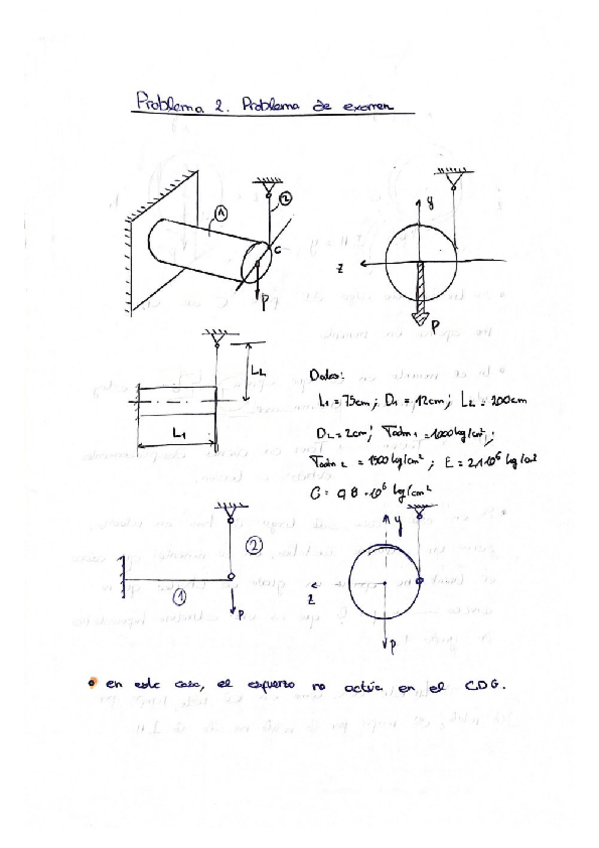 Problema 2. Problema de examen
1
2
C
P
y
z
P
L2
L1
Datos:
L1 = 75cm; D1 = 12cm; L2 = 200cm
D2 = 2cm; Tadm1 = 1000 kg/cm²;
Tadm 2 = 1500 kg/cm²; E = 2,1·10⁶ kg/cm²
G = 0,8·10⁶ kg/cm²
2
1
P
y
z
P
en este caso, el esfuerzo no actúa en el C.D.G.